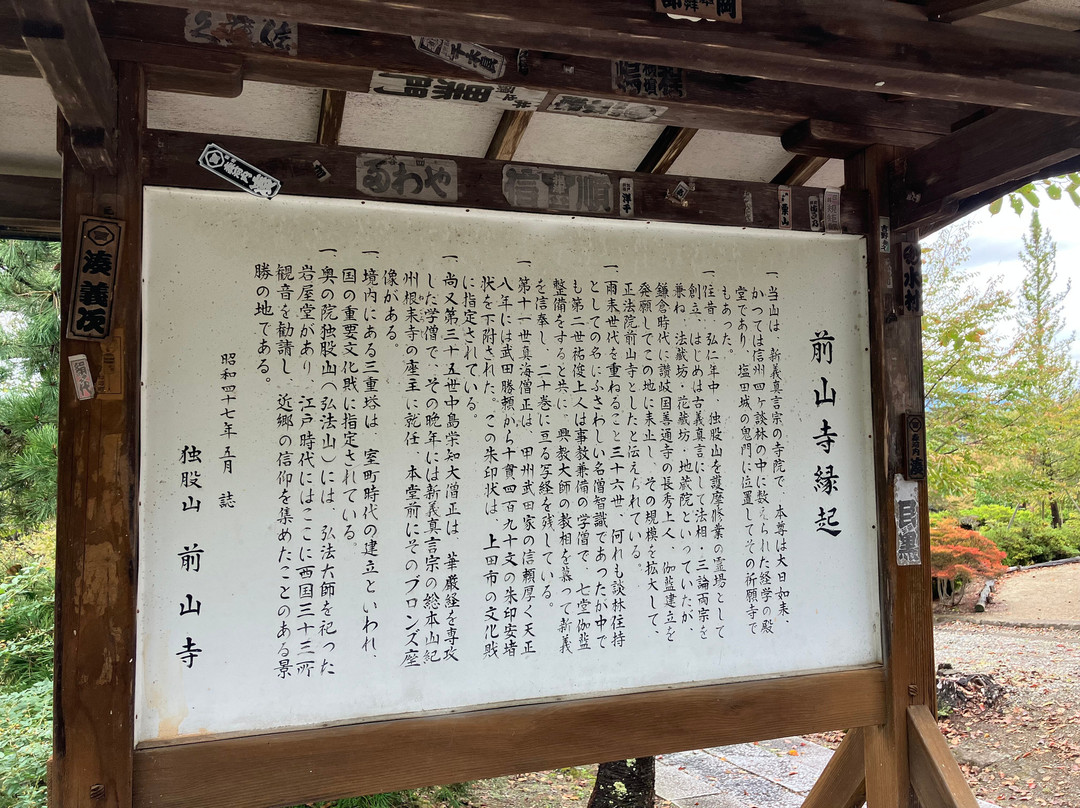 前山寺縁起
一 当山は 新義真言宗の寺院で 本尊は大日如来、
かつては信州四ヶ談林の中に数えられた経学の殿
堂であり 塩田城の鬼門に位置してその祈願寺で
もあった。
一 往昔 弘仁年中 独股山を護摩修業の霊場として
創立、はじめは古義真言にして法相・三論両宗を
兼ね 法蔵坊・花蔵坊・地蔵院といっていたが、
鎌倉時代に讃岐国善通寺の長秀上人 伽藍建立を
発願してこの地に来止し、その規模を拡大して、
正法院前山寺としたと伝えられている。
一 雨来世代を重ねること三十六世、何れも談林住持
としての名にふさわしい名僧智識であったが中で
も第二世祐俊上人は事教兼備の学僧で 七堂伽藍
整備をすると共に 興教大師の教相を慕って新義
を信奉し 二十巻に亘る写経を残している。
第十一世真海僧正は 甲州武田家の信頼厚く天正
八年には武田勝頼から十貫四百九十文の朱印安堵
状を下附された。この朱印状は、上田市の文化財
に指定されている。
一 尚又第三十五世中島栄知大僧正は 華厳経を専攻
した学僧で、その晩年には新義真言宗の総本山紀
州根来寺の座主に就任、本堂前にそのブロンズ座
像がある。
一 境内にある三重塔は 室町時代の建立といわれ、
国の重要文化財に指定されている。
一 奥の院独股山（弘法山）には 弘法大師を祀った
岩屋堂があり 江戸時代にはここに西国三十三所
観音を勧請し 近郷の信仰を集めたことのある景
勝の地である。
昭和四十七年五月 誌
独股山 前山寺
るわや
信富順
湊義次